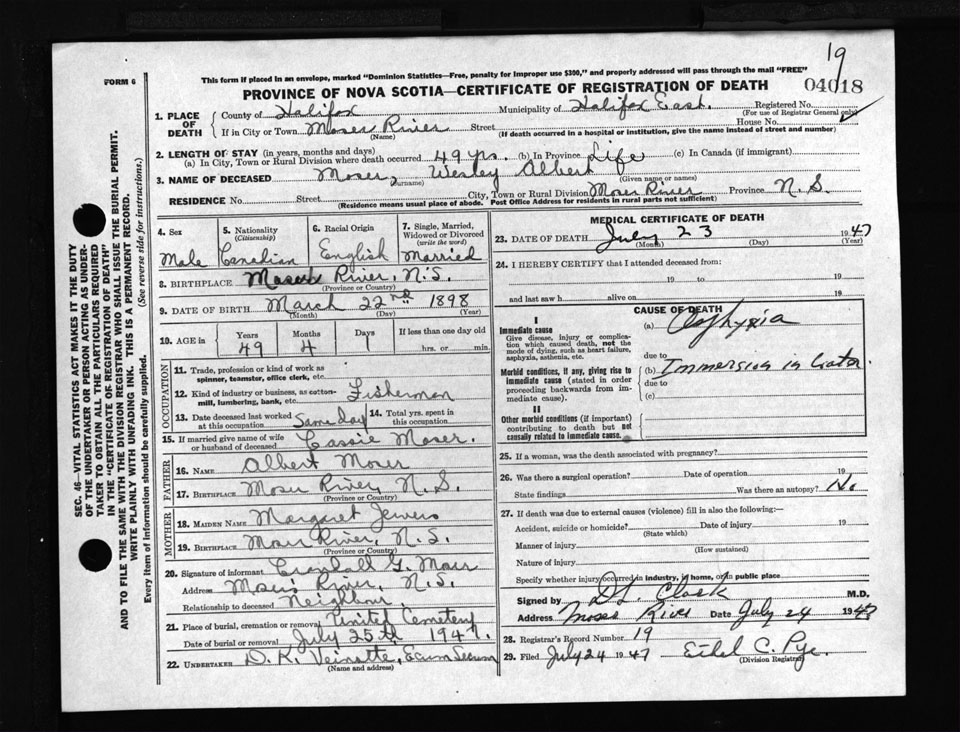 19
FORM 6
This form if placed in an envelope, marked "Dominion Statistics—Free, penalty for improper use $300," and properly addressed will pass through the mail "FREE"
PROVINCE OF NOVA SCOTIA—CERTIFICATE OF REGISTRATION OF DEATH 04018
1. PLACE OF DEATH County of Halifax Municipality of Halifax East. Registered No.
(For use of Registrar General only)
If in City or Town Moser River Street House No.
(Name) (If death occurred in a hospital or institution, give the name instead of street and number)
2. LENGTH OF STAY (in years, months and days)
(a) In City, Town or Rural Division where death occurred 49 yrs. (b) In Province Life (c) In Canada (if immigrant)
3. NAME OF DECEASED Moser, Wesley Albert
(Surname) (Given name or names)
RESIDENCE No. Street City, Town or Rural Division Moser River Province N.S.
(Residence means usual place of abode. Post Office Address for residents in rural parts not sufficient)
4. Sex 5. Nationality (Citizenship) 6. Racial Origin 7. Single, Married, Widowed or Divorced (write the word)
Male Canadian English Married
8. BIRTHPLACE Moser River, N.S.
(Province or Country)
9. DATE OF BIRTH March 22nd 1898
(Month) (Day) (Year)
10. AGE in Years Months Days If less than one day old
49 4 1 hrs. or min.
OCCUPATION
11. Trade, profession or kind of work as spinner, teamster, office clerk, etc.
12. Kind of industry or business, as cotton-mill, lumbering, bank, etc. Fisherman
13. Date deceased last worked at this occupation Same day 14. Total yrs. spent in this occupation
15. If married give name of wife or husband of deceased Cassie Moser.
FATHER
16. NAME Albert Moser
17. BIRTHPLACE Moser River, N.S.
(Province or Country)
MOTHER
18. MAIDEN NAME Margaret Jewers
19. BIRTHPLACE Moser River, N.S.
(Province or Country)
20. Signature of informant G.
Address Mosers River, N.S.
Relationship to deceased Neighbour
21. Place of burial, cremation or removal United Cemetery
Date of burial or removal July 25th 1947.
22. UNDERTAKER D. K. Veinotte, Ecum Secum
(Name and address)
MEDICAL CERTIFICATE OF DEATH
23. DATE OF DEATH July 23 1947
(Month) (Day) (Year)
24. I HEREBY CERTIFY that I attended deceased from:
19 to 19
and last saw h alive on 19
CAUSE OF DEATH
I
Immediate cause
Give disease, injury or complication which caused death, not the mode of dying, such as heart failure, asphyxia, asthenia, etc.
(a) Asphyxia
due to
Morbid conditions, if any, giving rise to immediate cause (stated in order proceeding backwards from immediate cause).
(b) Immersion in water
due to
(c)
II
Other morbid conditions (if important) contributing to death but not causally related to immediate cause.
25. If a woman, was the death associated with pregnancy?
26. Was there a surgical operation? Date of operation 19
State findings Was there an autopsy? No
27. If death was due to external causes (violence) fill in also the following:—
Accident, suicide or homicide? Date of injury 19
(State which)
Manner of injury
(How sustained)
Nature of injury
Specify whether injury occurred in industry, in home, or in public place
Signed by Clark M.D.
Address Moser River Date July 24 1947
28. Registrar's Record Number 19
29. Filed July 24 1947 Ethel C. Pye.
(Division Registrar)
SEC. 46—VITAL STATISTICS ACT MAKES IT THE DUTY
OF THE UNDERTAKER OR PERSON ACTING AS UNDER-
TAKER TO OBTAIN ALL THE PARTICULARS REQUIRED
IN THE "CERTIFICATE OF REGISTRATION OF DEATH"
AND TO FILE THE SAME WITH THE DIVISION REGISTRAR WHO SHALL ISSUE THE BURIAL PERMIT.
WRITE PLAINLY WITH UNFADING INK. THIS IS A PERMANENT RECORD.
Every item of Information should be carefully supplied. (See reverse side for instructions.)